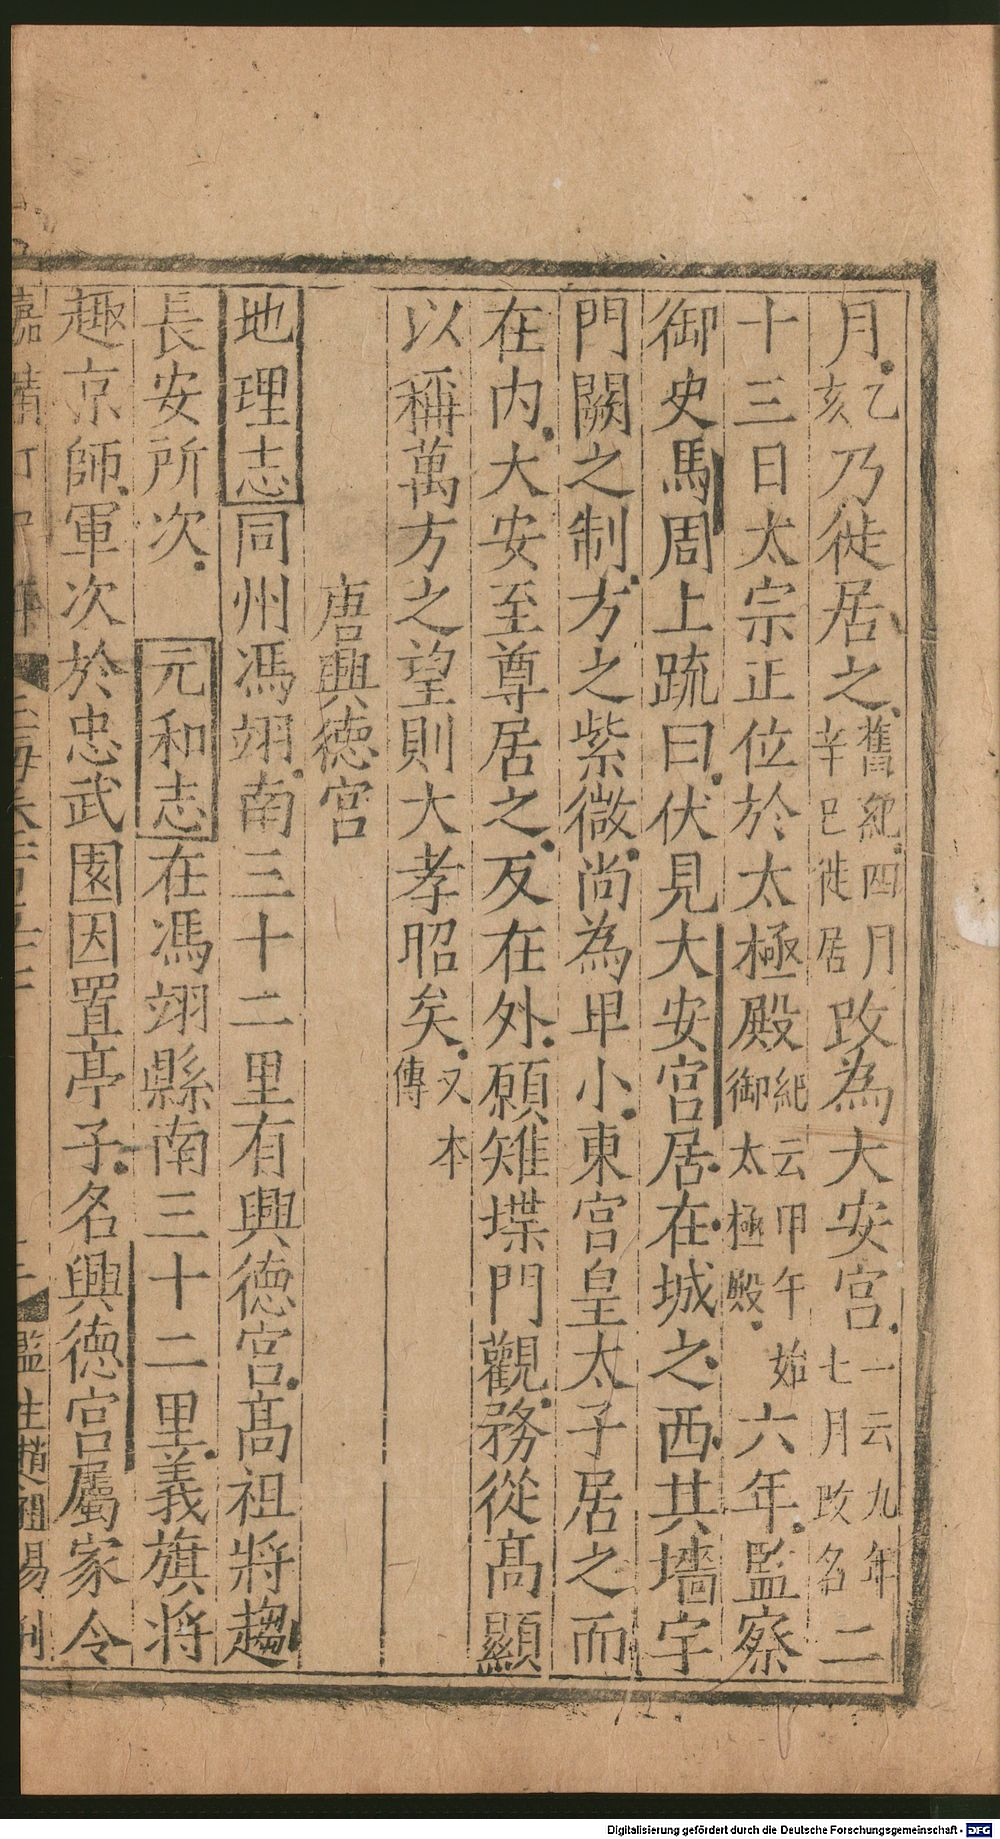 月乙亥乃徙居之舊紀四月辛巳徙居改為大安宮一云九年七月改名二
十三日太宗正位於太極殿紀云甲午始御太極殿六年監察
御史馬周上疏曰伏見大安宮居在城之西其墻宇
門闕之制方之紫微尚為卑小東宮皇太子居之而
在内大安至尊居之反在外願雉堞門觀務從高顯
以稱萬方之望則大孝昭矣又本傳
唐興德宮
地理志同州馮翊南三十二里有興德宮高祖將趨
長安所次元和志在馮翊縣南三十二里義旗將
趣京師軍次於忠武園因置亭子名興德宮屬家令
監生趙祖易刊
Digitalisierung gefördert durch die Deutsche Forschungsgemeinschaft - DFG